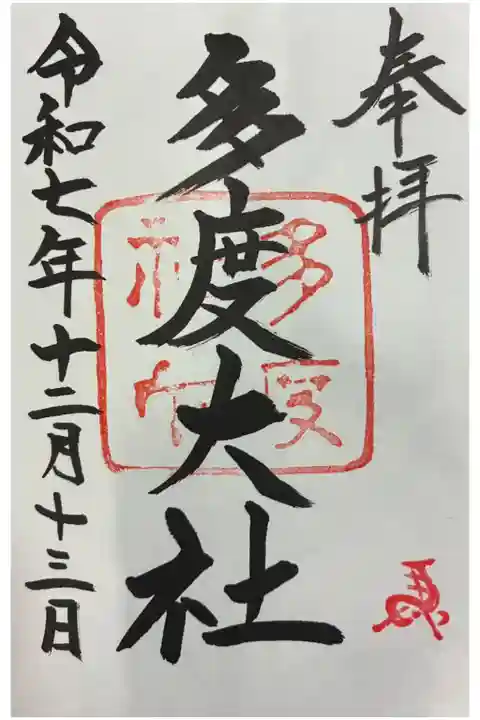 奉拝
多度大社
令和七年十二月十三日